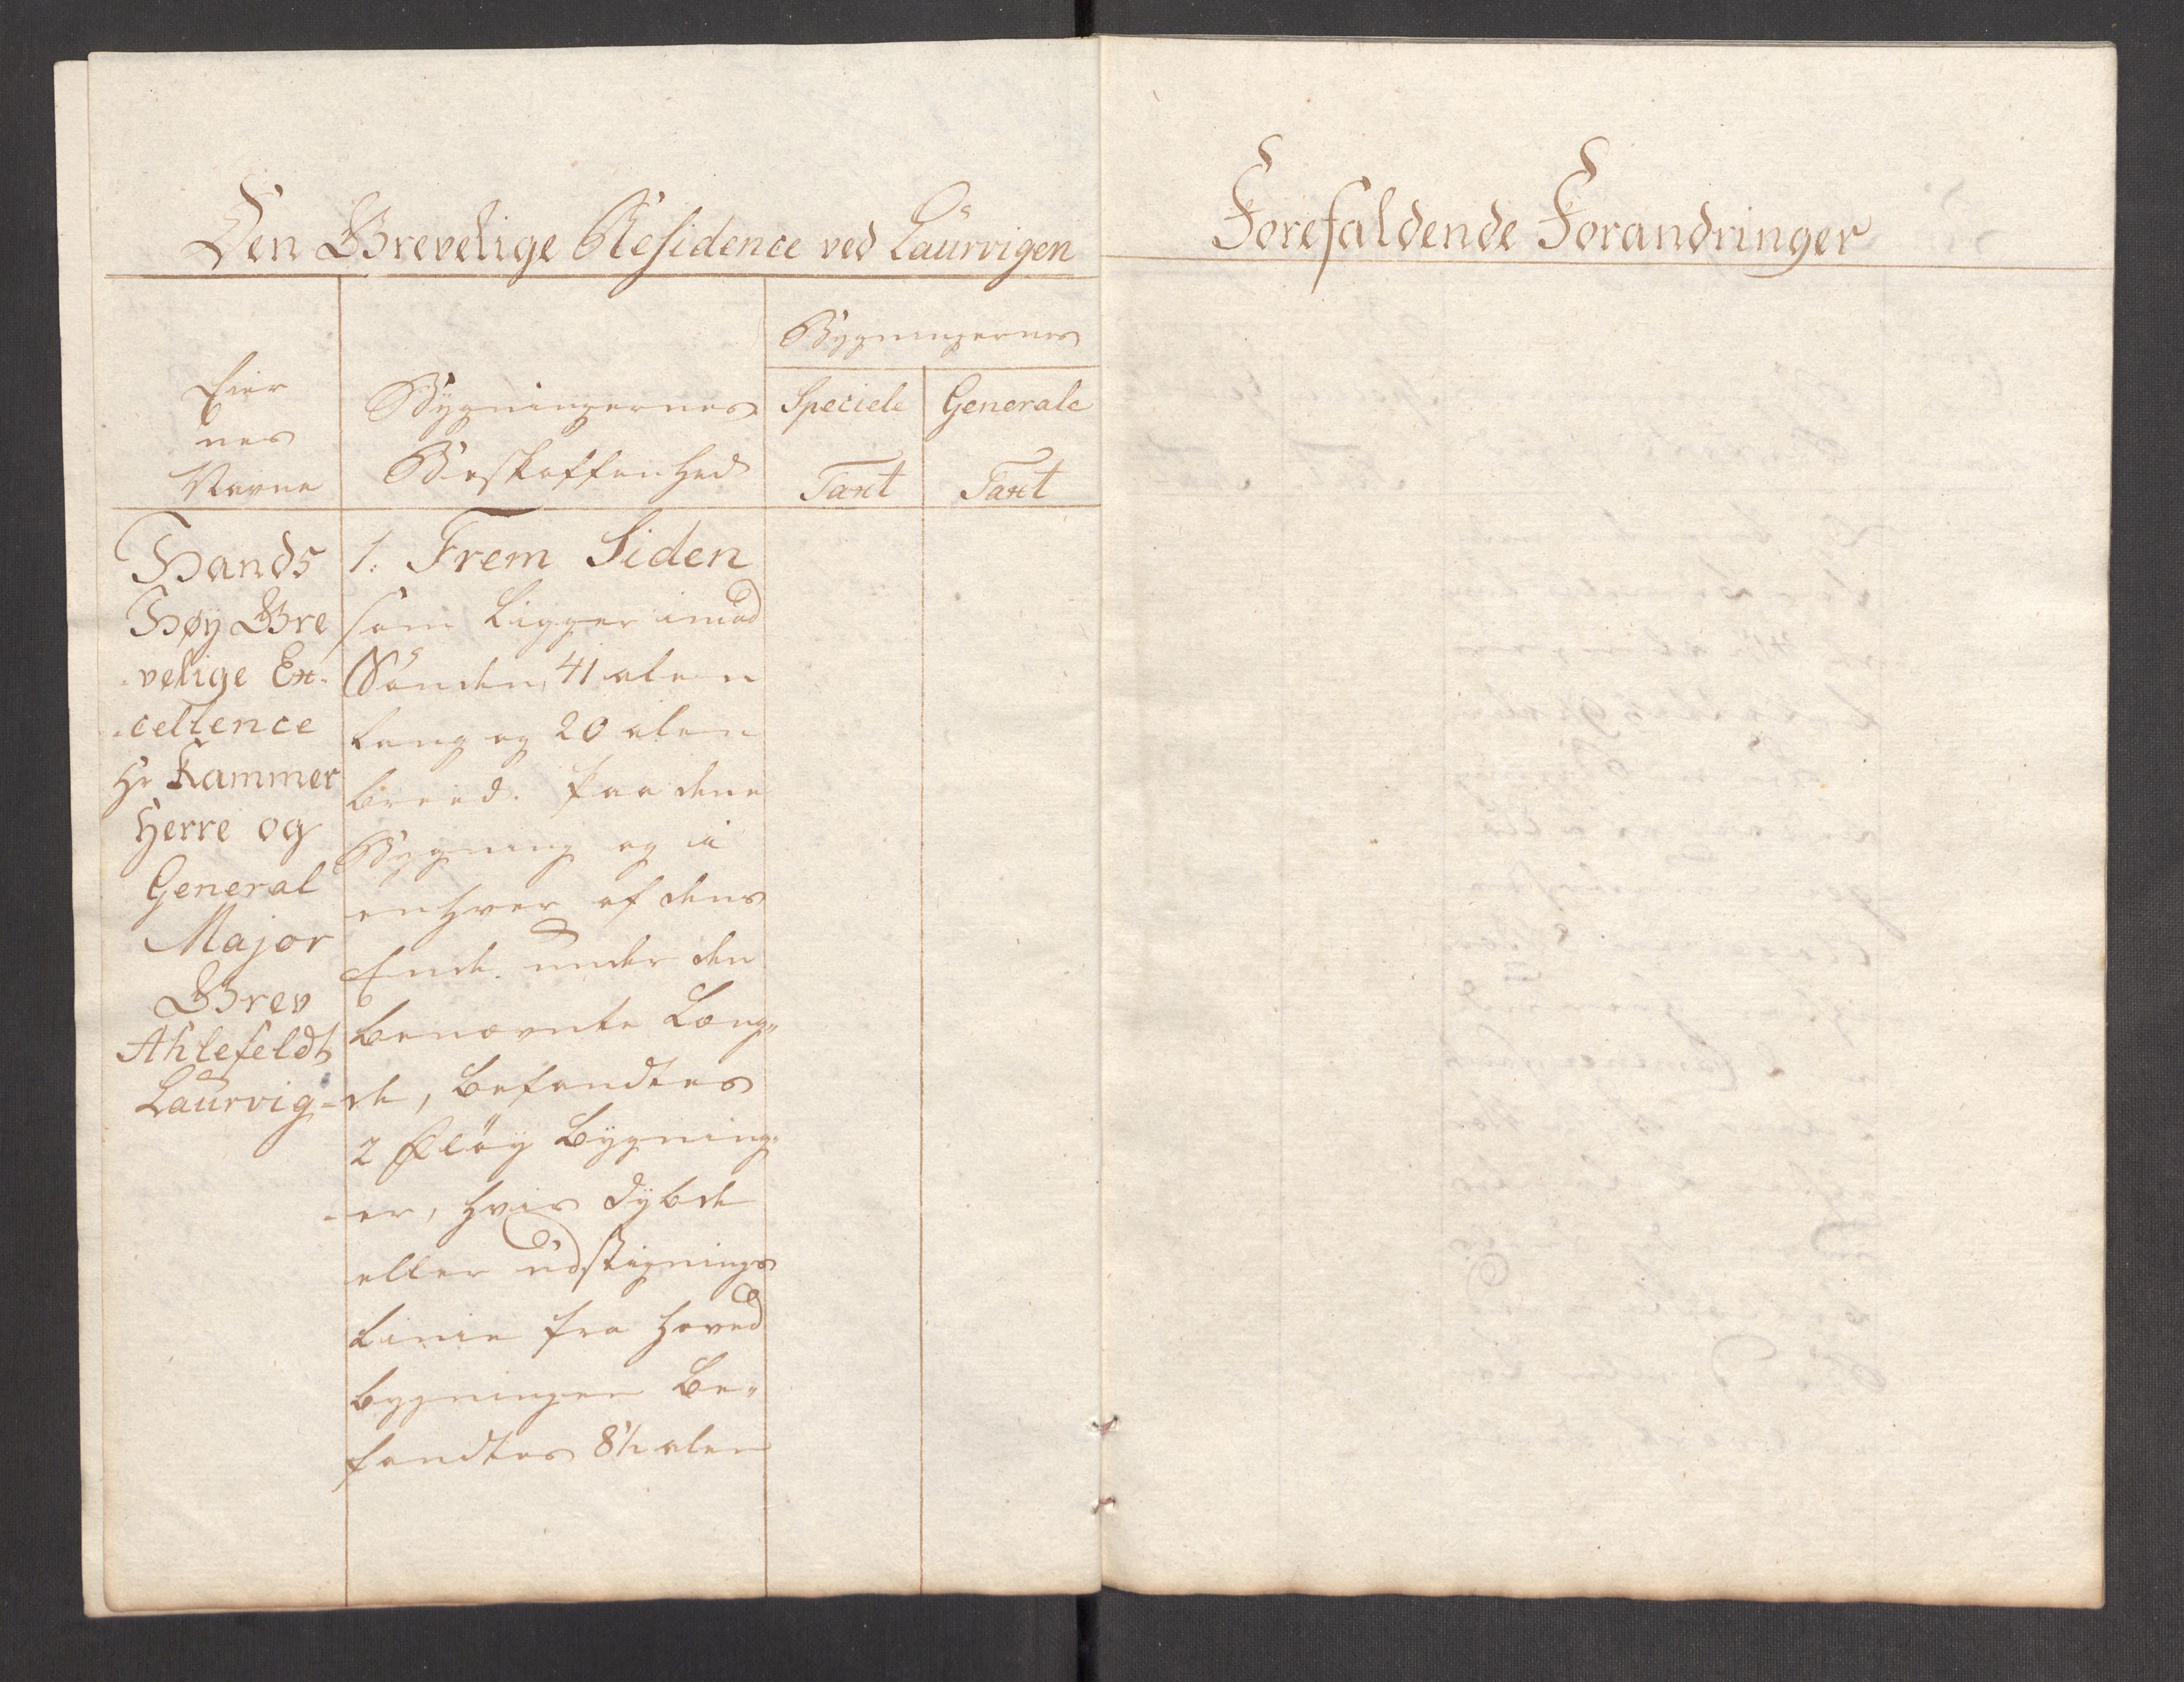 Den Grevelige Residence ved Laurvigen
Eier
nes
Navne
Bygningernes
Beskaffenhed
Bygningernes
Speciele
Taxt
Generale
Taxt
Hands
Høy Gre
-velige Ex-
-cellence
Hr Kammer
Herre og
General
Major
Grev
Ahlefeldt
Laurvig-
1. Frem Siden
som Ligger imod
Sönden, 41 alen
lang og 20 alen
breed. Paa dene
Bygning og i
enhver af dens
Ende under den
benævnte Læng„
de, befandtes
2 Flöy bÿgning„
-er, hvis dÿbde
eller udstignings
Linie fra hoved
bygningen be„
fandtes 8½ alen
Forefaldende Forandringer